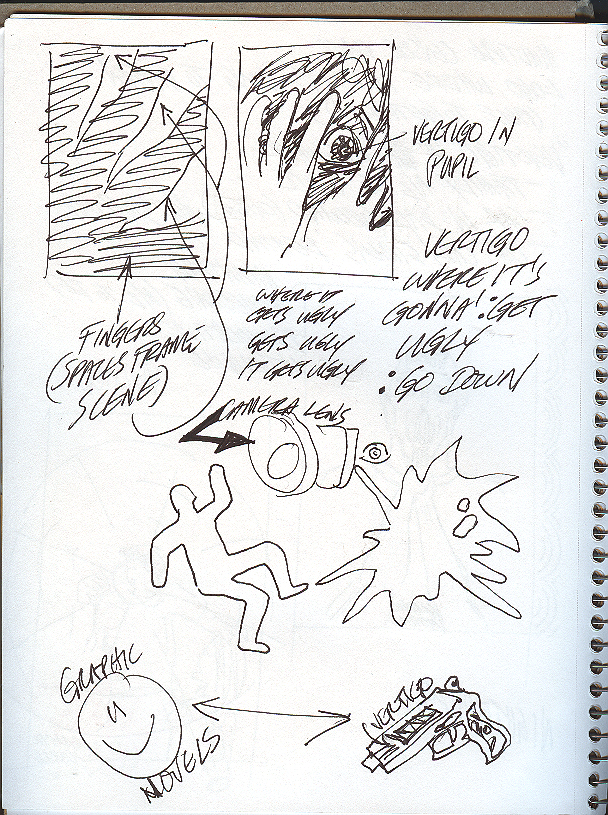 VERTIGO IN
PUPIL
VERTIGO
WHERE IT'S
GONNA! : GET
UGLY
: GO DOWN
WHERE IT
GETS UGLY
GETS UGLY
IT GETS UGLY
FINGERS
(SPACES FRAME
SCENE)
CAMERA LENS
GRAPHIC
NOVELS
VERTIGO